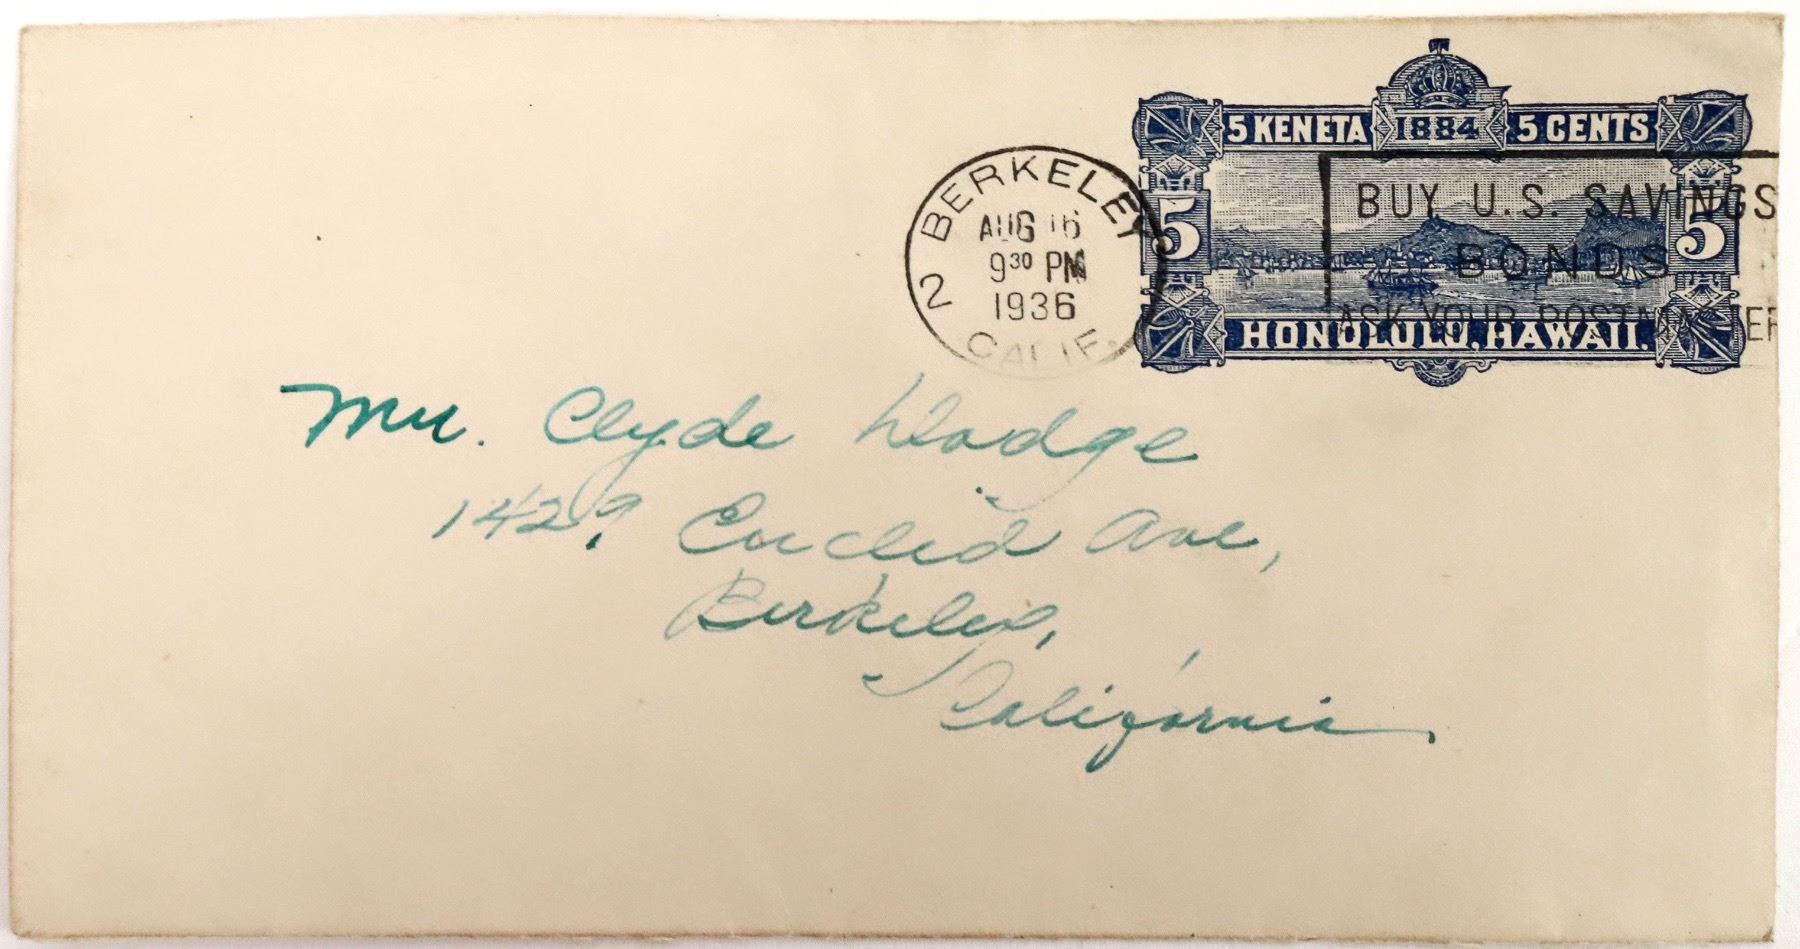 5 KENETA 1884 5 CENTS
5 5
HONOLULU, HAWAII.
BERKELEY
AUG 16
9 30 PM
1936
2 CALIF.
BUY U.S. SAVINGS
BONDS
ASK YOUR POSTMASTER
Mr. Clyde Dodge
1429 Euclid Ave,
Berkeley,
California.